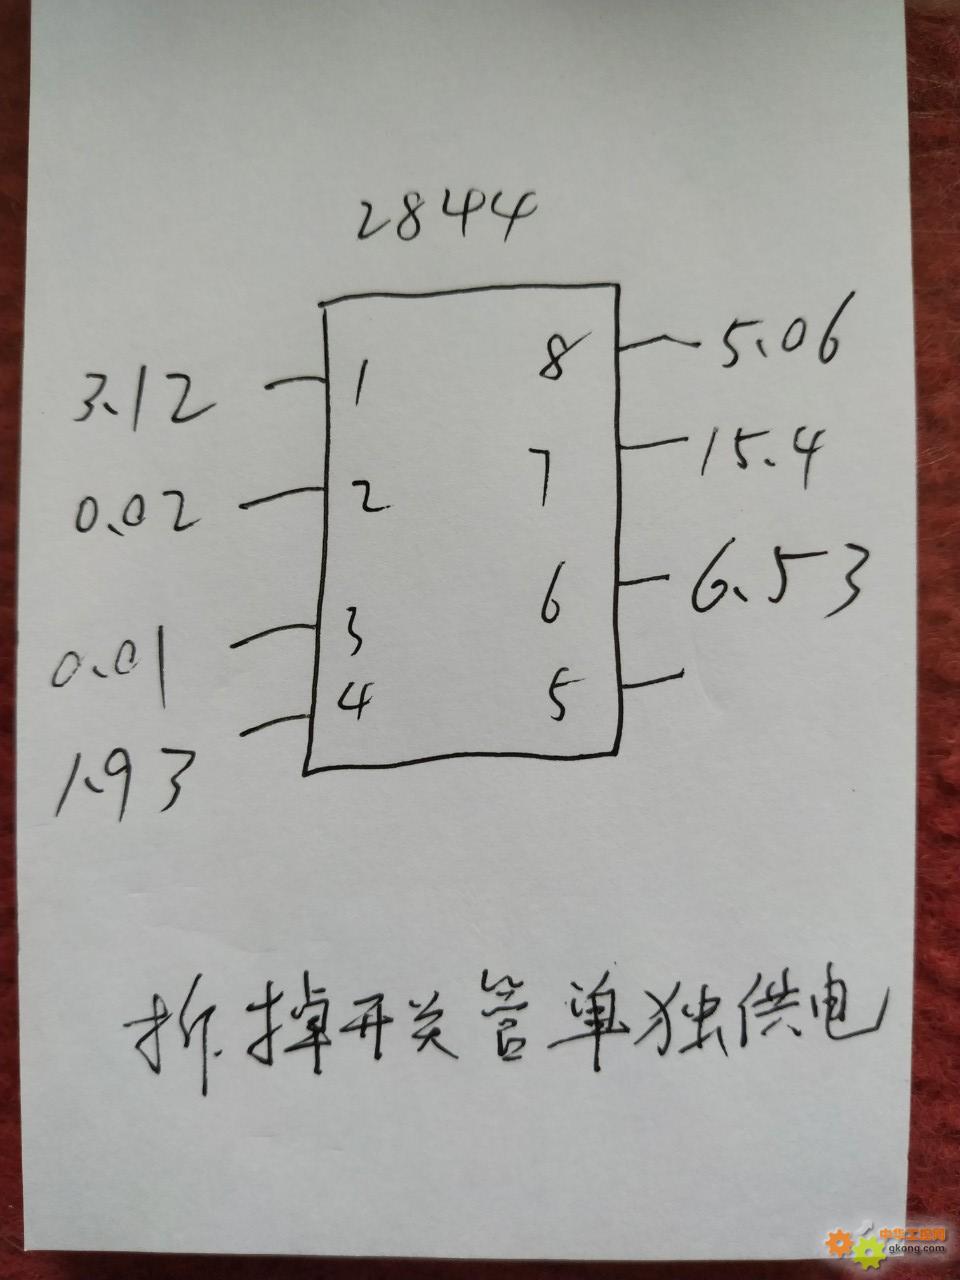 2844
3.12 1 8 5.06
0.02 2 7 15.4
0.01 3 6 6.53
1.93 4 5
拆掉开关管单独供电
中华工控网
gkong.com